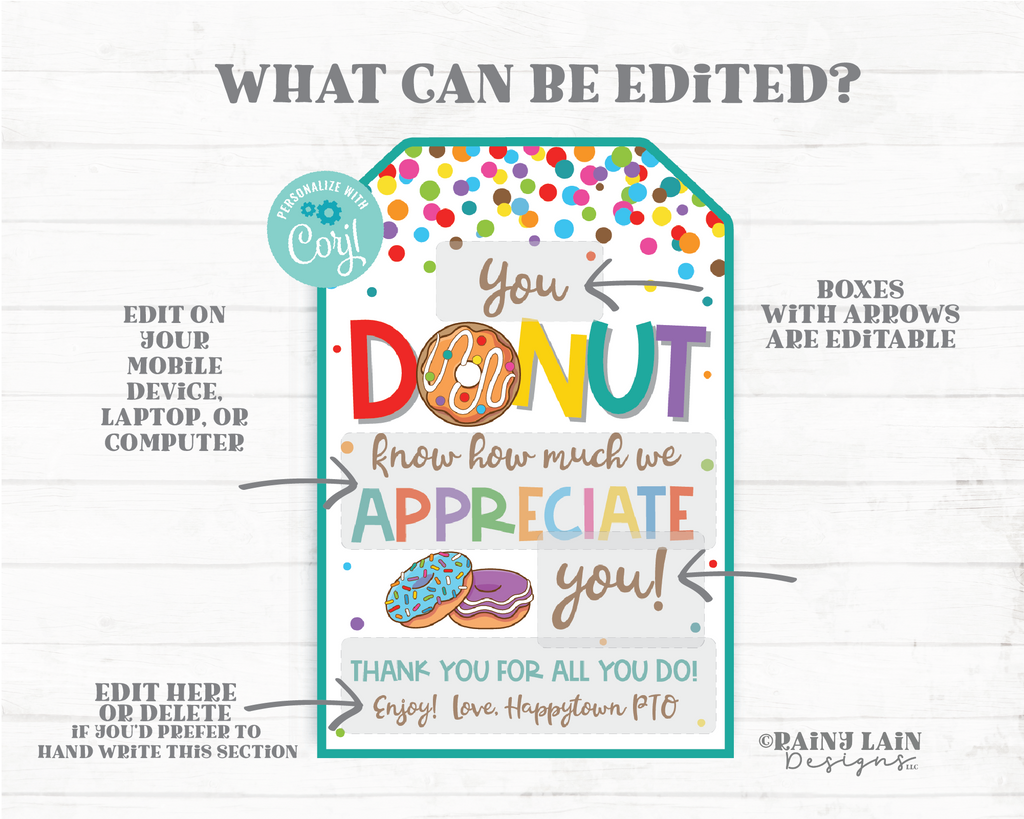 WHAT CAN BE EDiTED?
PERSONALIZE WITH
Corjl
You
DONUT
know how much we
APPRECIATE
you!
THANK YOU FOR ALL YOU DO!
Enjoy! Love, Happytown PTO
EDIT ON
YOUR
MOBiLE
DEViCE,
LAPTOP, OR
COMPUTER
BOXES
WiTH ARROWS
ARE EDiTABLE
EDIT HERE
OR DELETE
iF YOU'D PREFER TO
HAND WRITE THIS SECTION
©RAiNY LAiN
Designs LLC